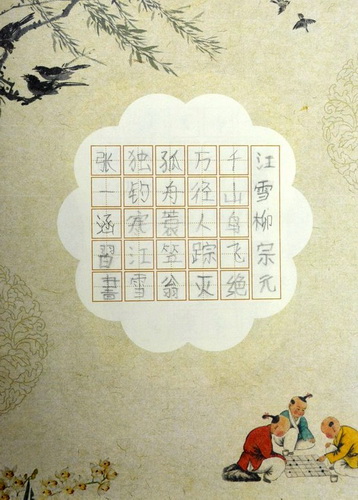 江雪柳宗元
千山鸟飞绝
万径人踪灭
孤舟蓑笠翁
独钓寒江雪
张一涵習書